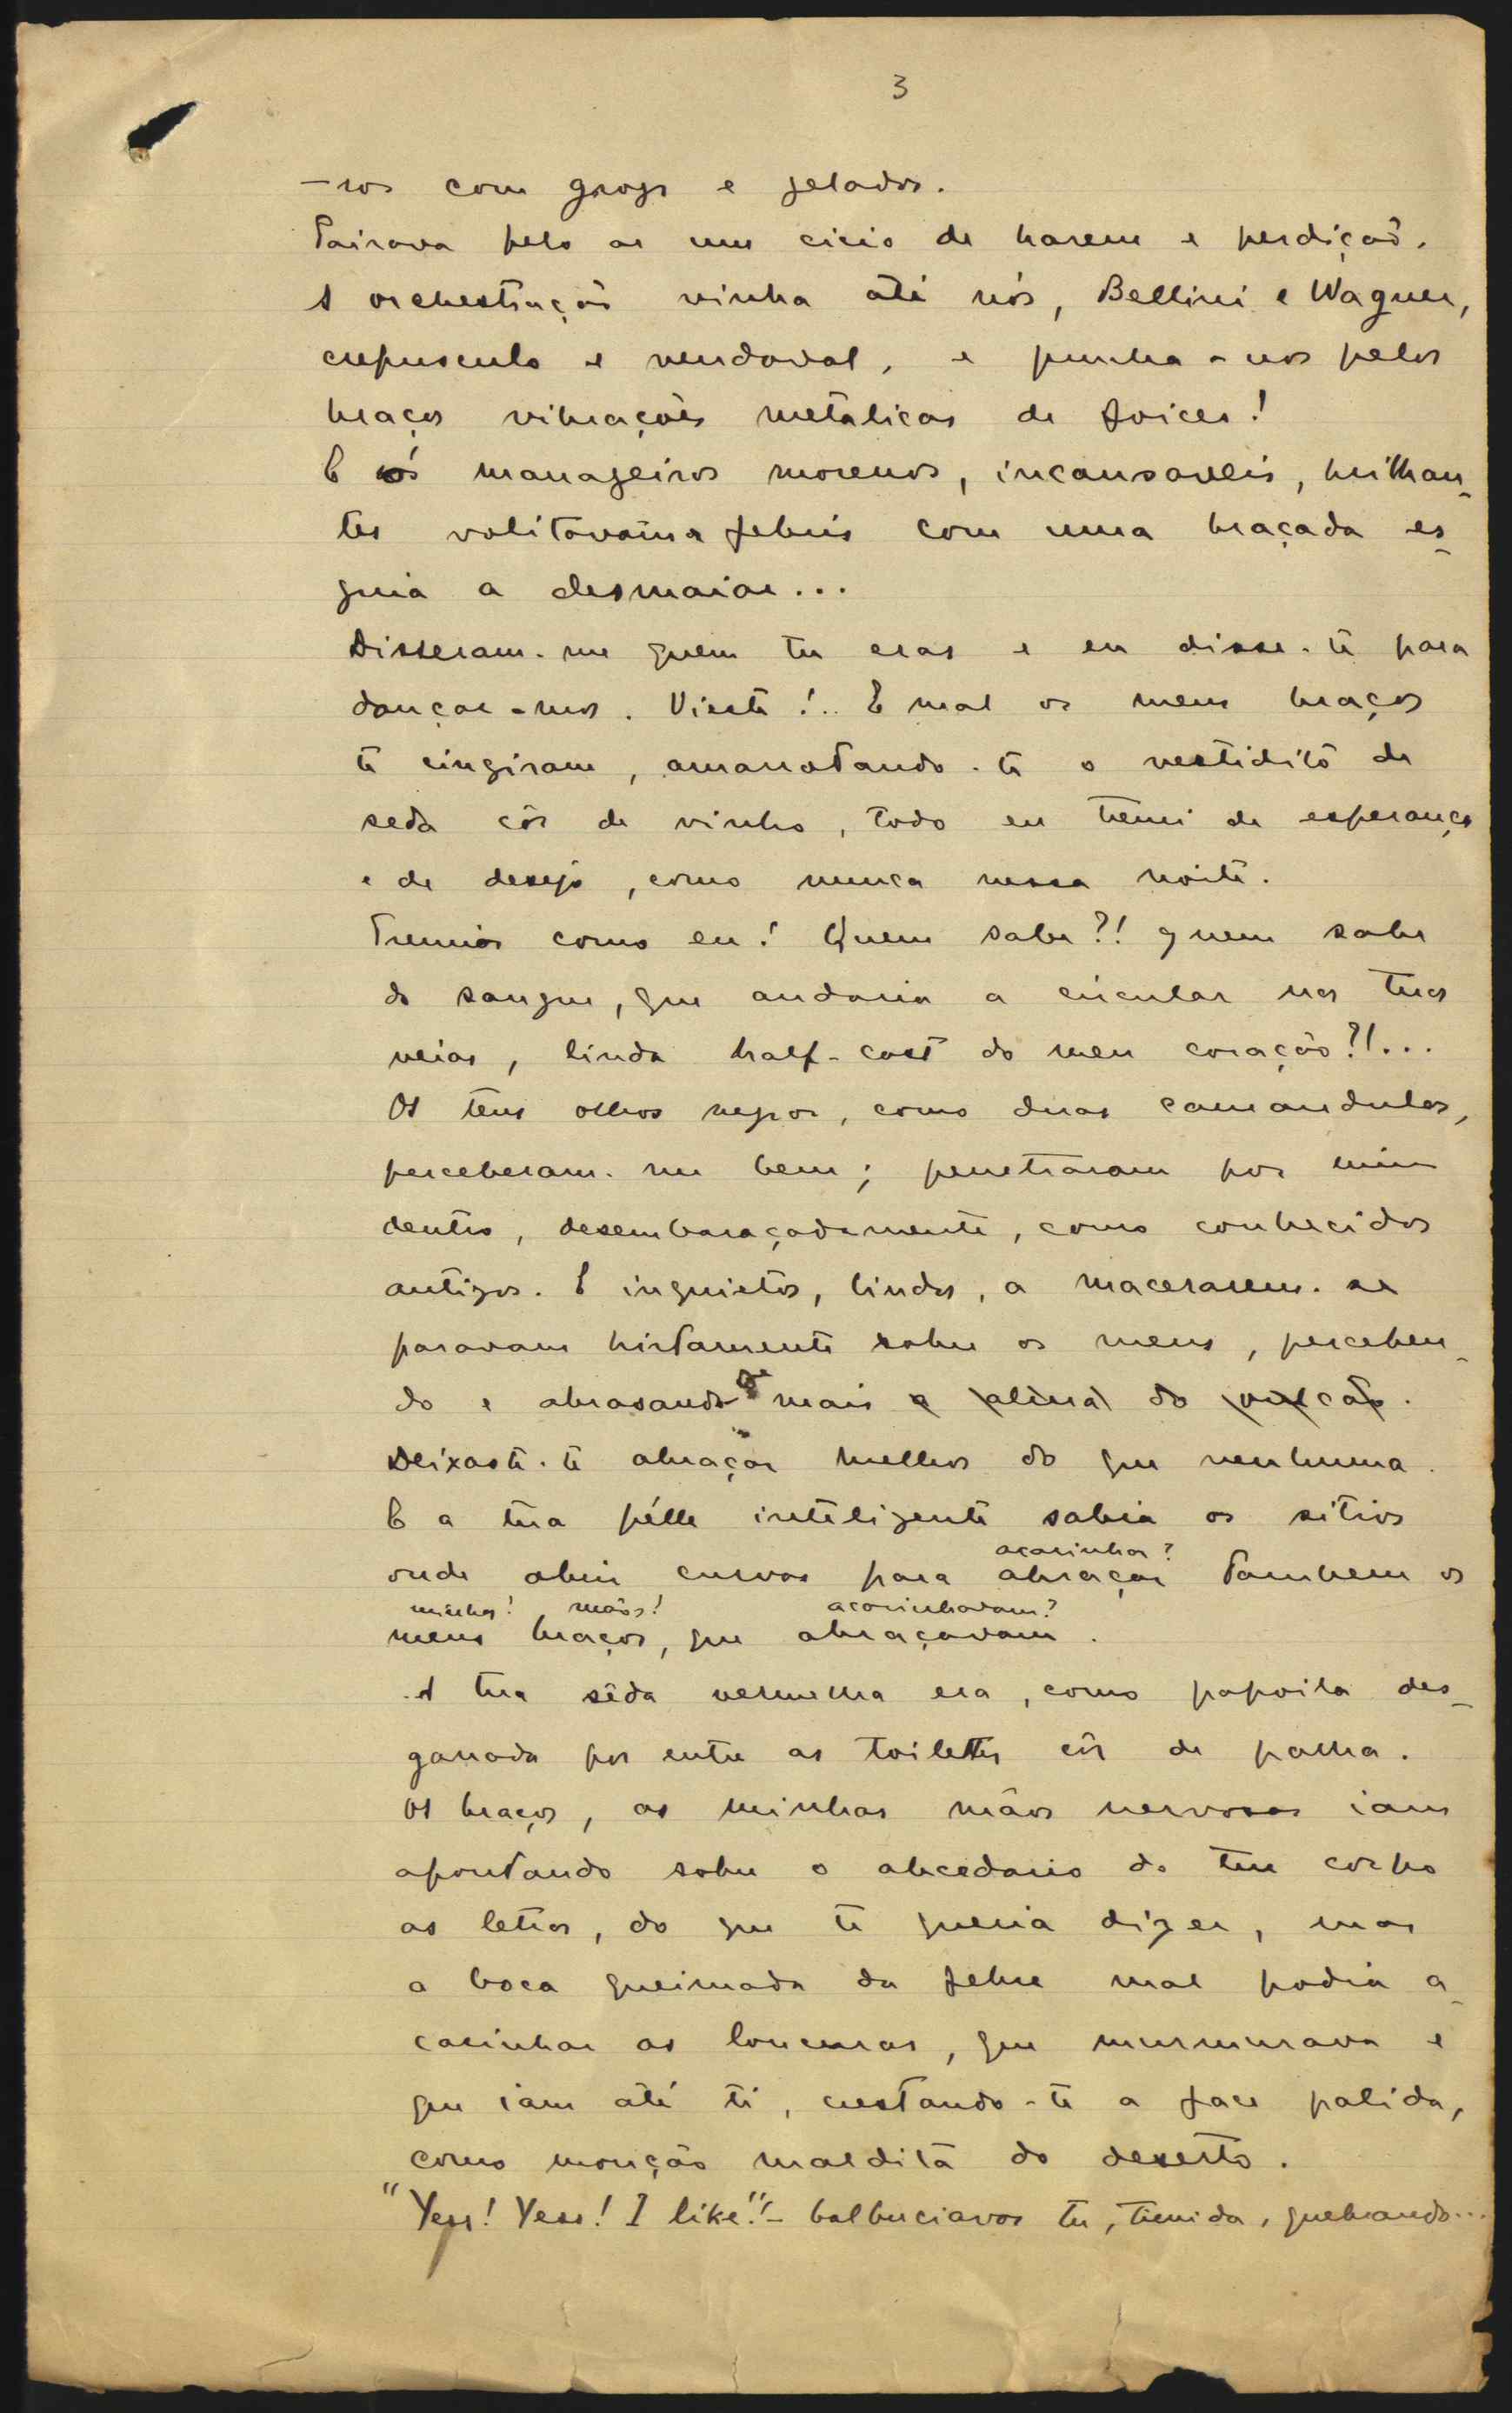 3
-nos com grogs e gelados.
Pairava pelo ar um cicio de harem e perdição.
A orchestração vinha até nós, Bellini e Wagner,
crepusculo e vendaval, e punha-nos pelos
braços vibrações metálicas de foices!
E nós manageiros morenos, incansaveis, brilhan-
tes volitavamos febris com uma braçada es-
guia a desmaiar...
Disseram-me quem tu eras e eu disse-te para
dançar-mos. Vieste!.. E mal os meus braços
te cingiram, amarrotando-te o vestidito de
seda côr de vinho, todo eu tremi de esperança
e de desejo, como nunca nessa noite.
Tremias como eu! Quem sabe?! Quem sabe
do sangue, que andaria a circular nas tuas
veias, linda half-cast do meu coração?!...
Os teus olhos negros, como duas camandulas,
perceberam-me bem; penetraram por mim
dentro, desembaraçadamente, como conhecidos
antigos. E inquietos, lindos, a macerarem-se
paravam hirtamente sobre os meus, perceben-
do e abrasando-se mais a alma do vulcão.
Deixaste-te abraçar melhor do que nenhuma.
E a tua pélle inteligente sabia os sitios
acarinhar?
onde abrir curvas para abraçar tambem os
minhas! mãos! acarinhavam?
meus braços, que abraçavam.
A tua sêda vermelha era, como papoila des-
garrada por entre as toilettes côr de palha.
Os braços, as minhas mãos nervosas iam
apontando sobre o abecedario do teu corpo
as letras, do que te queria dizer, mas
a boca queimada da febre mal podia a-
carinhar as loucuras, que murmurava e
que iam até ti, crestando-te a face palida,
como monção maldita do deserto.
"Yess! Yess! I like!"- balbuciavas tu, timida, quebrando...